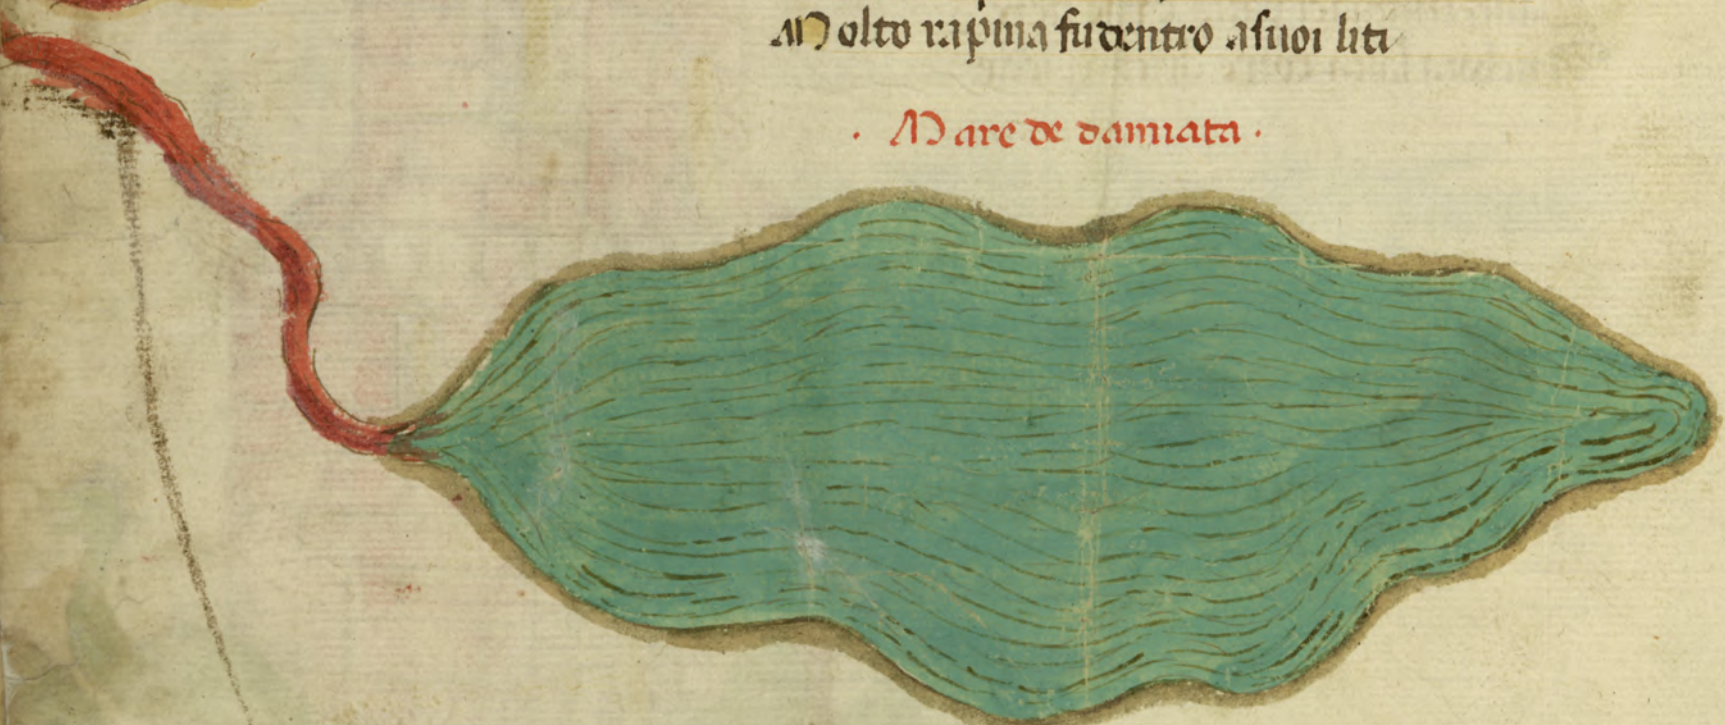 Molto rapina fu dentro a suoi liti
· Mare de damiata ·